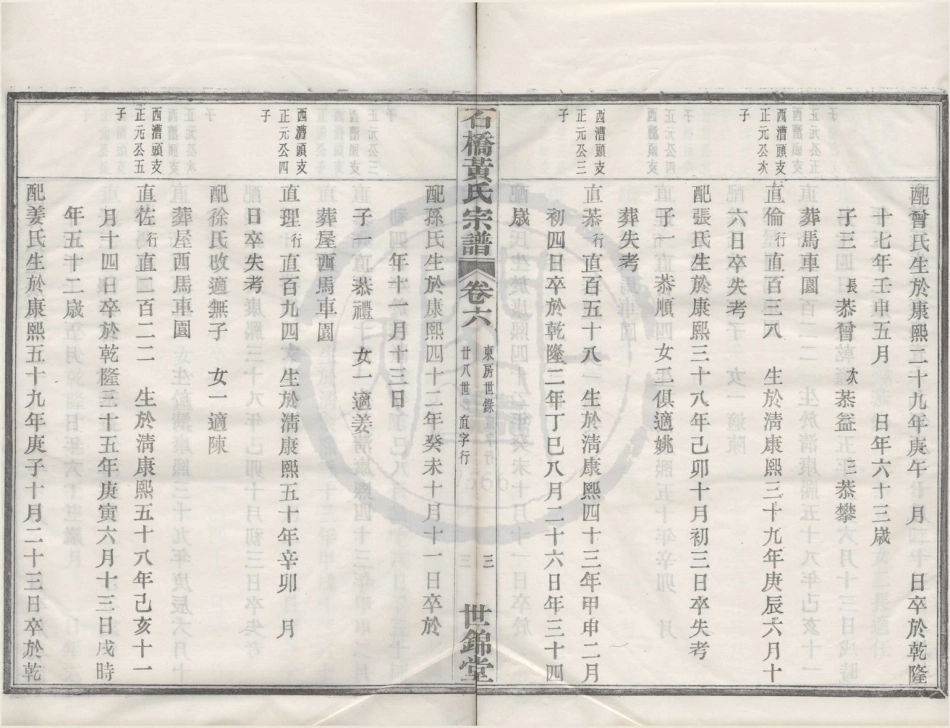 配曾氏生於康熙二十九年庚午　月　日卒於乾隆
十七年壬申五月　日年六十三歲
子三　長恭曾　次恭益　三恭攀
西漕頭支
正元公次
子
直倫行直百三八　生於清康熙三十九年庚辰六月十
六日卒失考
葬馬車園
配張氏生於康熙三十八年己卯十月初三日卒失考
子一　恭順　女二俱適姚
葬失考
西漕頭支
正元公三
子
直恭行直百五十八　生於清康熙四十三年甲申二月
初四日卒於乾隆二年丁巳八月二十六日年三十四
歲
石橋黃氏宗譜
卷六
東房世錄
廿八世　直字行
三
世錦堂
配孫氏生於康熙四十二年癸未十月十一日卒於
年十一月十三日
子一恭禮　女一適姜
葬屋西馬車園
西漕頭支
正元公四
子
直理行直百九四　生於清康熙五十年辛卯　月
日卒失考
配徐氏改適無子　女一適陳
葬屋西馬車園
西漕頭支
正元公五
子
直佐行直百二二　生於清康熙五十八年己亥十一
月十四日卒於乾隆三十五年庚寅六月十三日戌時
年五十二歲
配姜氏生於康熙五十九年庚子十月二十三日卒於乾